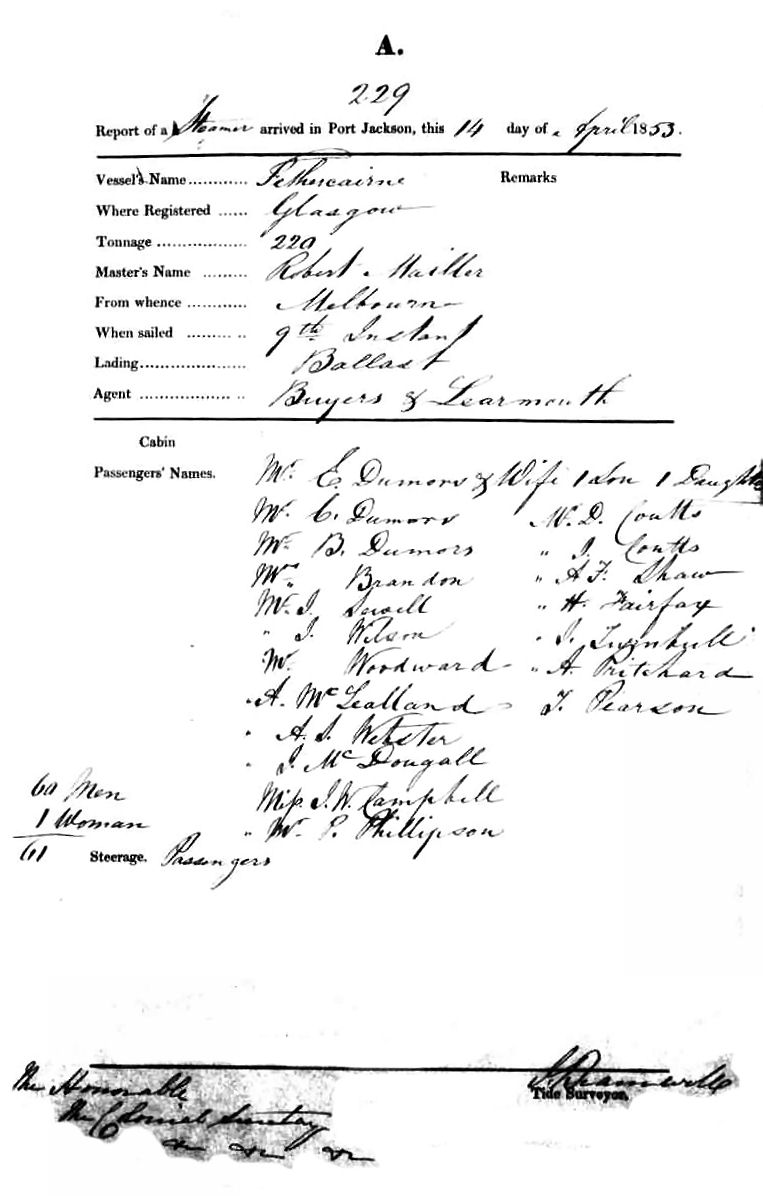 A.
229
Report of a Steamer arrived in Port Jackson, this 14 day of April 1853.
Vessel's Name ............ Fethercairne Remarks
Where Registered ...... Glasgow
Tonnage .................. 220
Master's Name ......... Robert
From whence ............ Melbourne
When sailed ......... .. 9th Instant
Lading..................... Ballast
Agent .................. .. Buyers & Learmouth
Cabin
Passengers' Names. Mr. E. Dumors & Wife 1 Son 1 Daughter
Mr. C. Dumors Mr. D. Coutts
Mr. B. Dumors " J. Coutts
Mrs. Brandon " A F. Shaw
Mr. J. Sewell " H. Fairfax
" J. Wilson " J. Turnbull
Mr. Woodward " A. Pritchard
" A. McLealland J. Pearson
" A. J. Webster
" J. McDougall
60 Men Miss J. W. Campbell
1 Woman " Mr. P. Phillipson
61 Steerage. Passengers
The Honorable
The Colonial Secretary
Tide Surveyor.